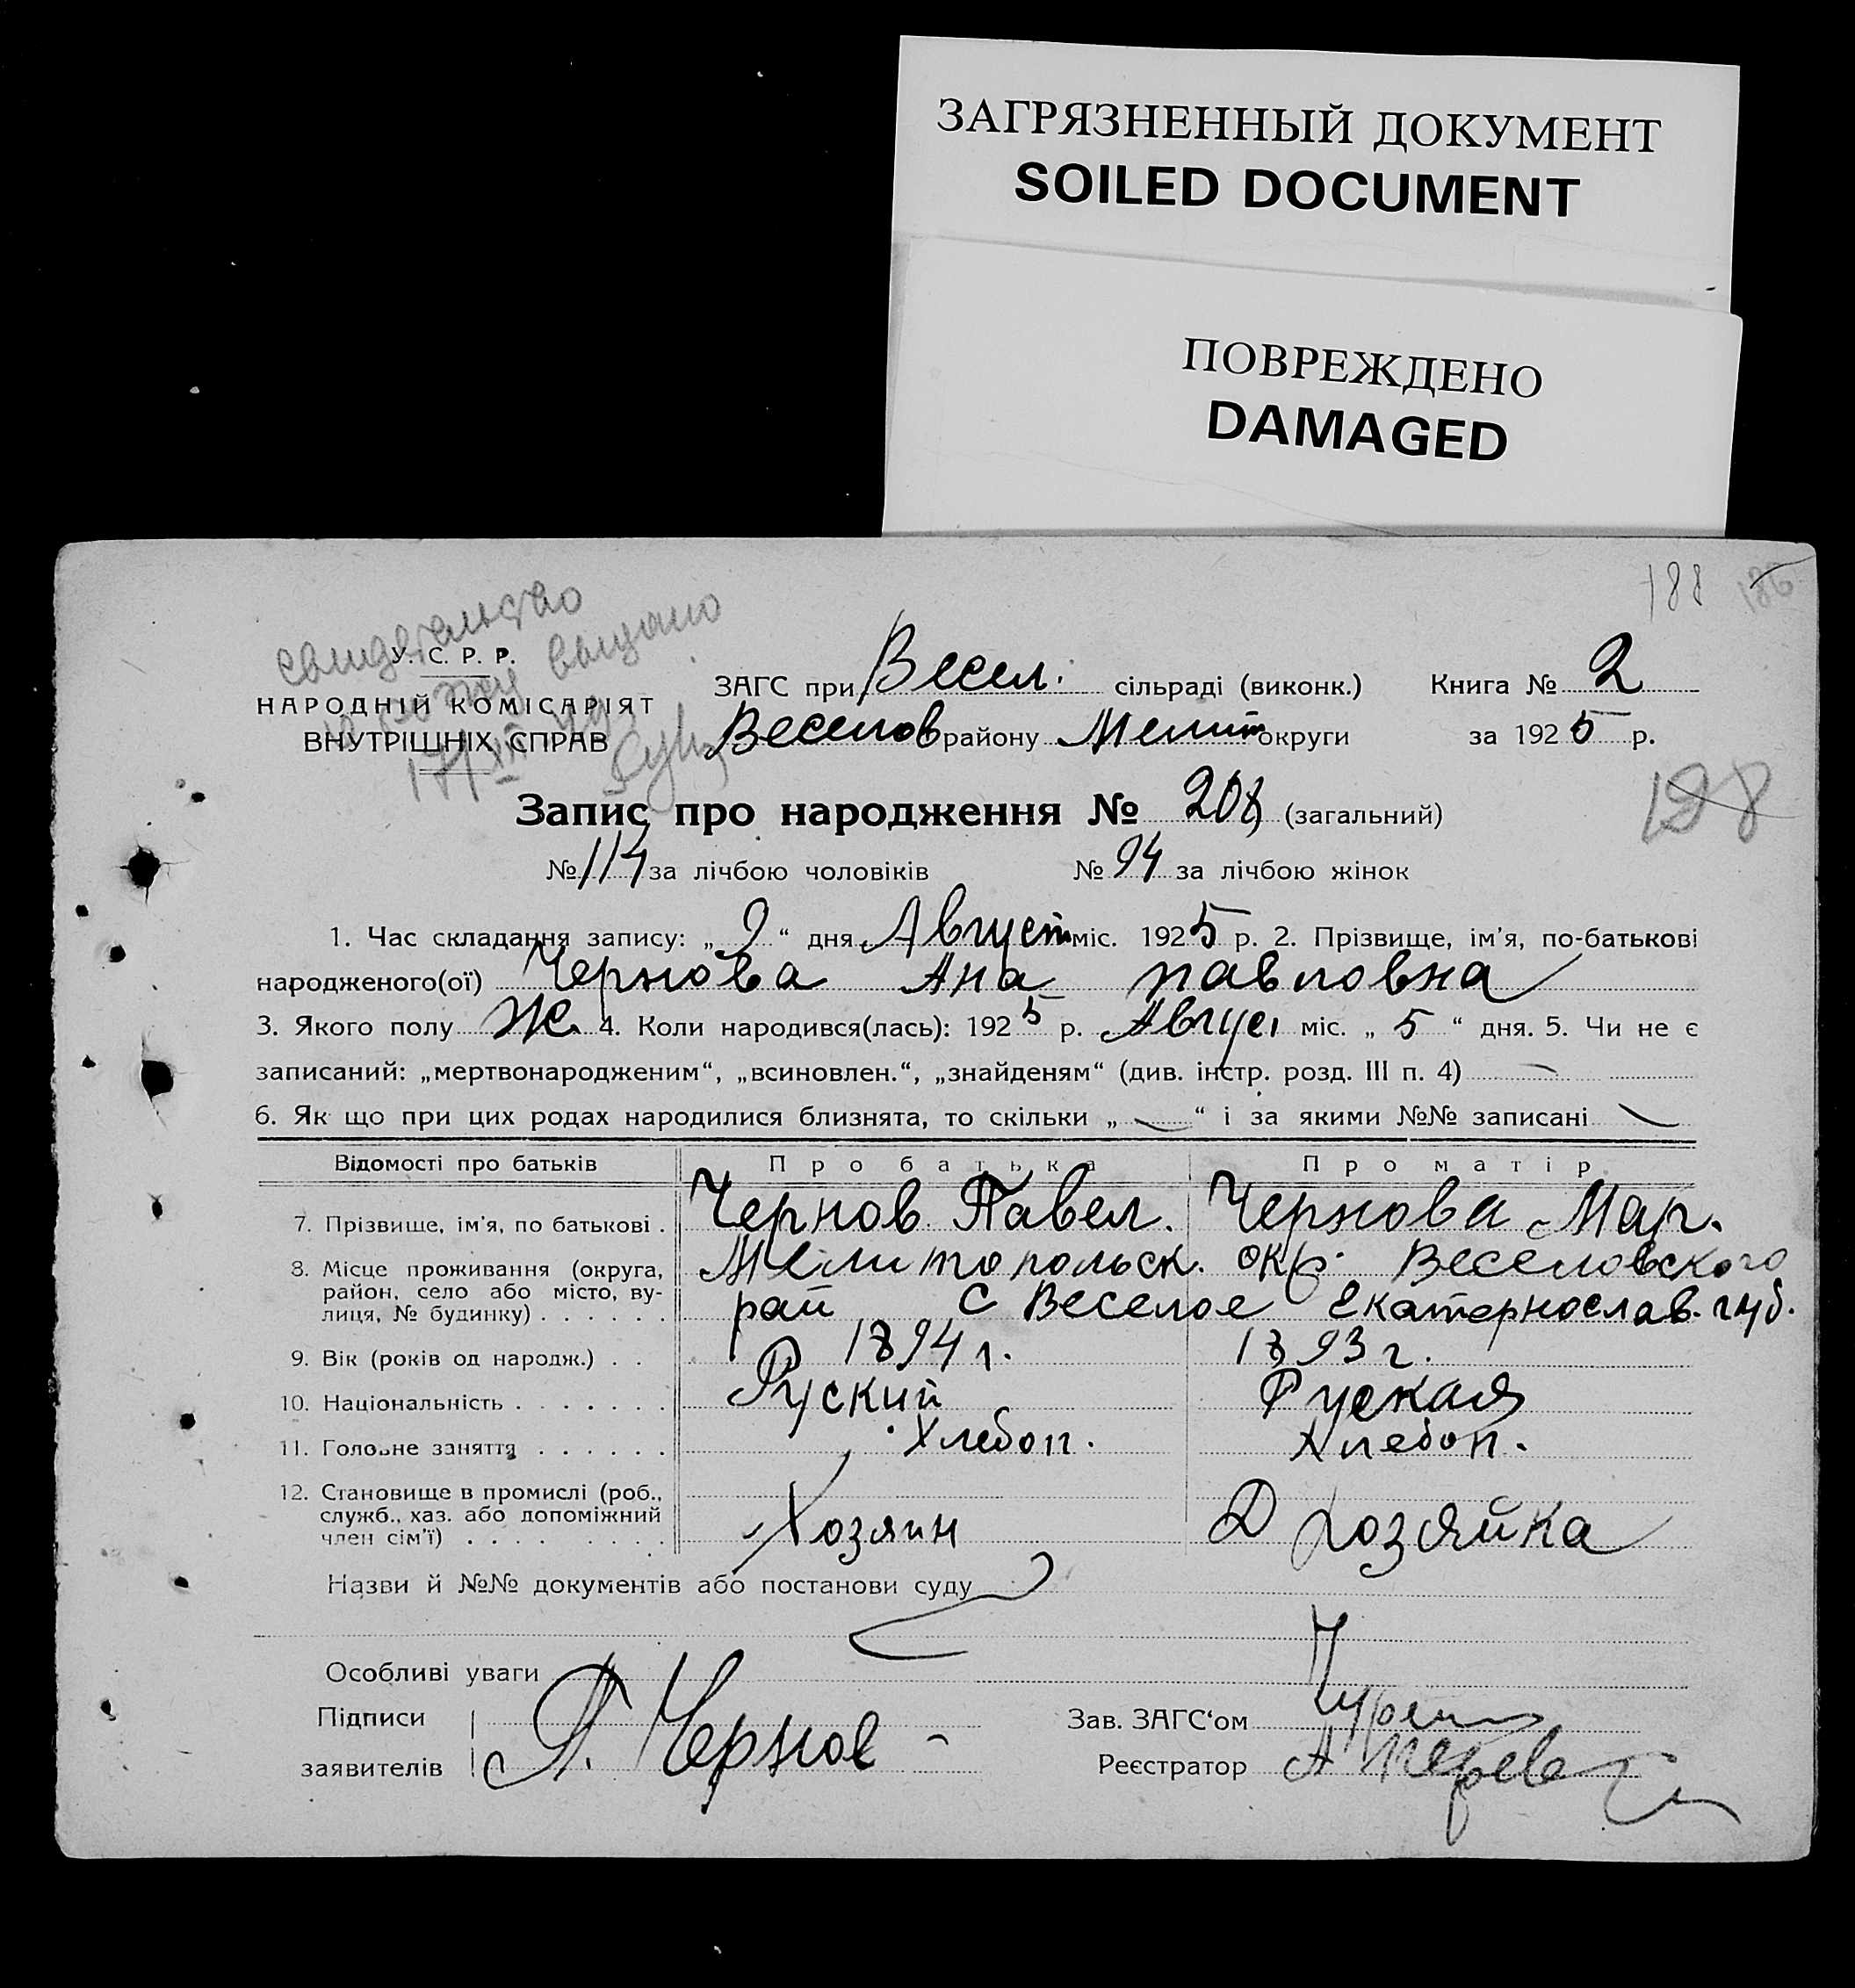 ЗАГРЯЗНЕННЫЙ ДОКУМЕНТ
SOILED DOCUMENT
ПОВРЕЖДЕНО
DAMAGED
188 186
свидетельство
выдано
У. С. Р. Р.
НАРОДНІЙ КОМІСАРІЯТ
ВНУТРІШНІХ СПРАВ
ЗАГС при Весел. сільраді (виконк.) Книга № 2
Веселов району Мелит округи за 1925 р.
198
Запис про народження № 208 (загальний)
№ 114 за лічбою чоловіків № 94 за лічбою жінок
1. Час складання запису: „ 9 “ дня Август міс. 1925 р. 2. Прізвище, ім'я, по-батькові
народженого(ої) Чернова Ана павловна
3. Якого полу Ж. 4. Коли народився(лась): 1925 р. Август міс. „ 5 “ дня. 5. Чи не є
записаний: „мертвонародженим“, „всиновлен.“, „знайденям“ (див. інстр. розд. III п. 4) —
6. Як що при цих родах народилися близнята, то скільки „ — “ і за якими №№ записані —
Відомості про батьків Про батька Про матір
7. Прізвище, ім'я, по батькові . Чернов Павел. Чернова Мар.
8. Місце проживання (округа, Мелитопольск. окр. Веселовского
район, село або місто, ву- рай с Веселое Екатернослав. губ.
лиця, № будинку) . . . . . .
9. Вік (років од народж.) . . 1894 г. 1893 г.
10. Національність . . . . . . . Руский Руская
11. Головне заняття . . . . . . Хлебоп. Хлебоп.
12. Становище в промислі (роб.,
служб., хаз. або допоміжний Хозяин Д Хозяйка
член сім'ї) . . . . . . . .
Назви й №№ документів або постанови суду
Особливі уваги
Підписи
заявителів П. Чернов
Зав. ЗАГС‘ом
Реєстратор А